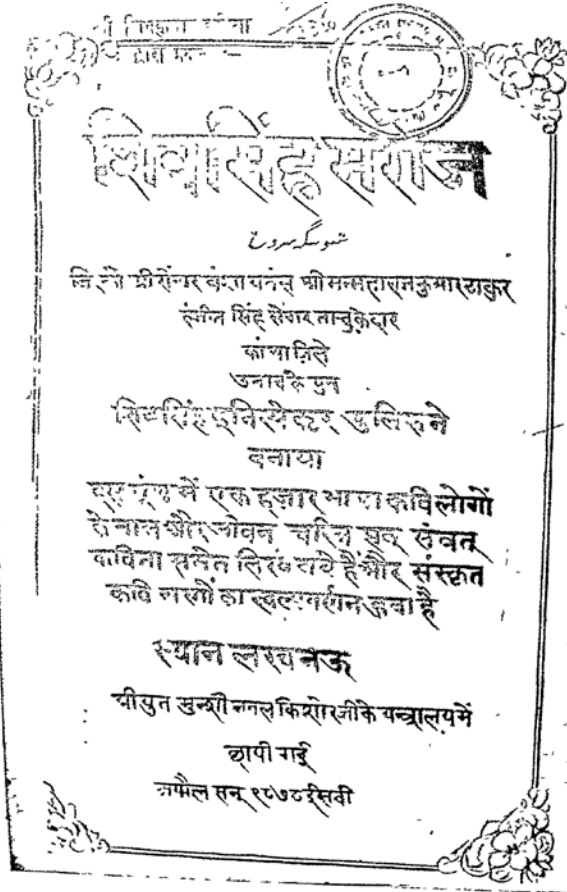 शिवसिंह सरोज
شیوسنگھ سروج
जिसको श्री सेंगर वंशावतंस श्रीमन्महाराजकुमार ठाकुर
रंजीत सिंह सेंगर तालुकेदार
कांथा ज़िले
उनाव के पुत्र
शिवसिंह इनिस्पेक्टर पुलिस ने
बनाया
इस ग्रंथ में एक हज़ार भाषा कवि लोगों
के नाम और जीवन चरित्र सन् संवत्
कविता समेत लिखे गये हैं और संस्कृत
कवि
है
स्थान लखनऊ
श्रीयुत मुन्शी नवल किशोर जी के यन्त्रालय में
छापी गई
अप्रैल सन् १८७८ ईसवी